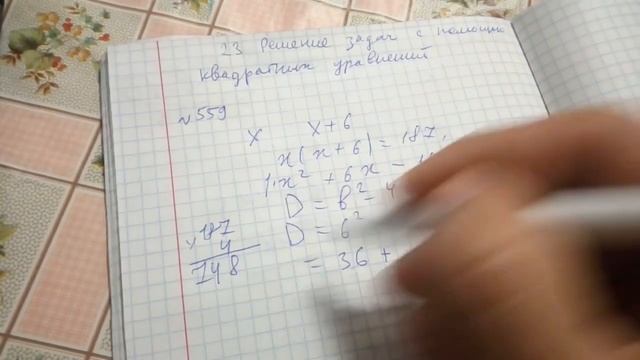 23 Решение задач с помощью
квадратных уравнений
№559
x x+6
x(x+6)=187,
1·x² + 6x - 1
D = b² - 4
D = 6²
= 36 +
×187
4
748